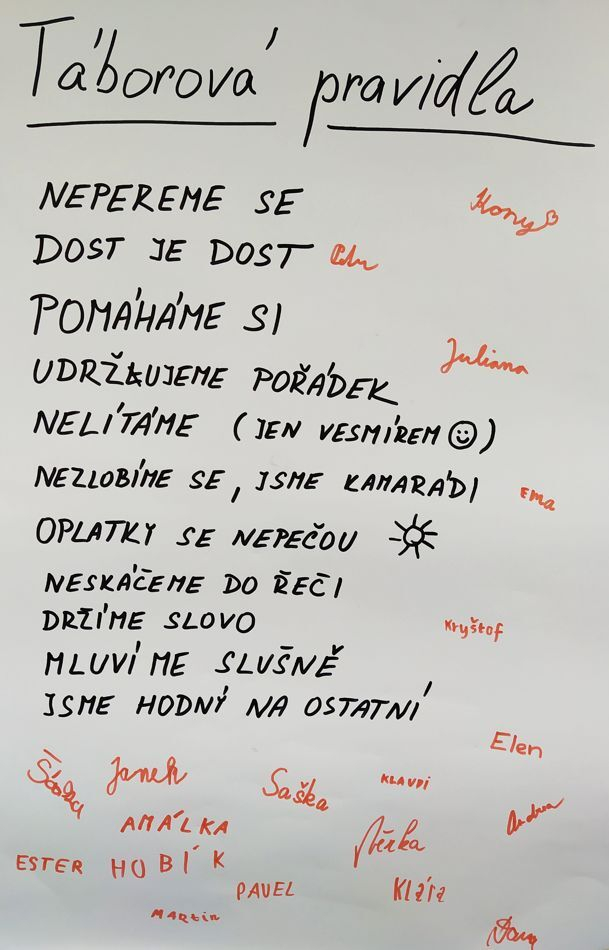 Táborová pravidla
NEPEREME SE
Kony
DOST JE DOST
POMÁHÁME SI
Juliana
UDRŽUJEME POŘÁDEK
NELÍTÁME (JEN VESMÍREM ☺)
NEZLOBÍME SE, JSME KAMARÁDI
Ema
OPLATKY SE NEPEČOU
NESKÁČEME DO ŘEČI
DRŽÍME SLOVO
Kryštof
MLUVÍME SLUŠNĚ
JSME HODNÝ NA OSTATNÍ
Elen
Janek
Saška
KLAUDI
Andrea
AMÁLKA
ESTER
HOBÍK
PAVEL
Klára
MARTIN